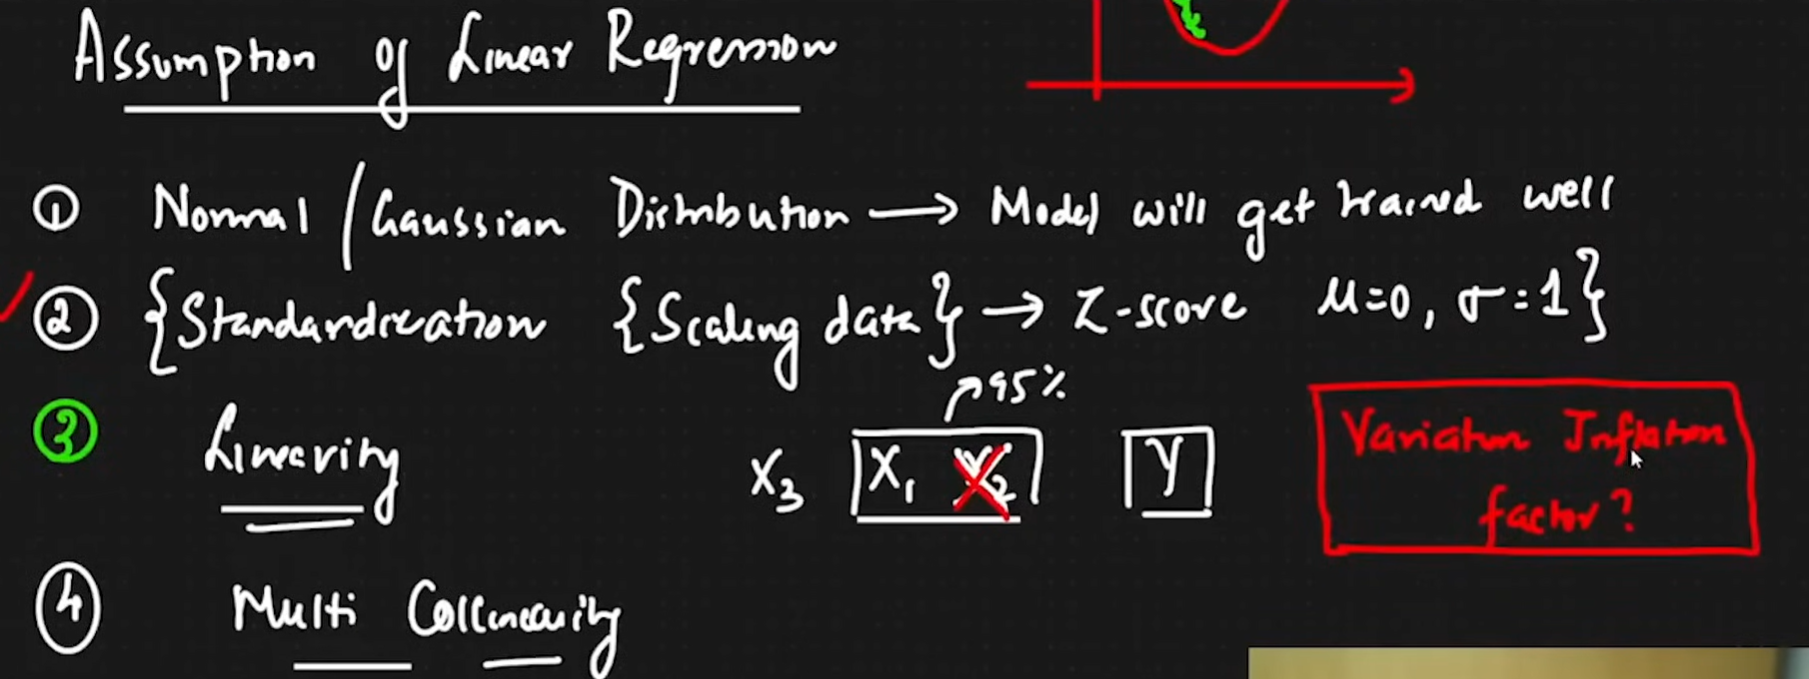 Assumption of Linear Regression
① Normal / Gaussian Distribution → Model will get trained well
② {Standardization {Scaling data} → Z-score μ=0, σ=1}
↗95%
③ Linearity X₃ X₁ X₂ Y Variation Inflation
factor?
④ Multi Collinearity